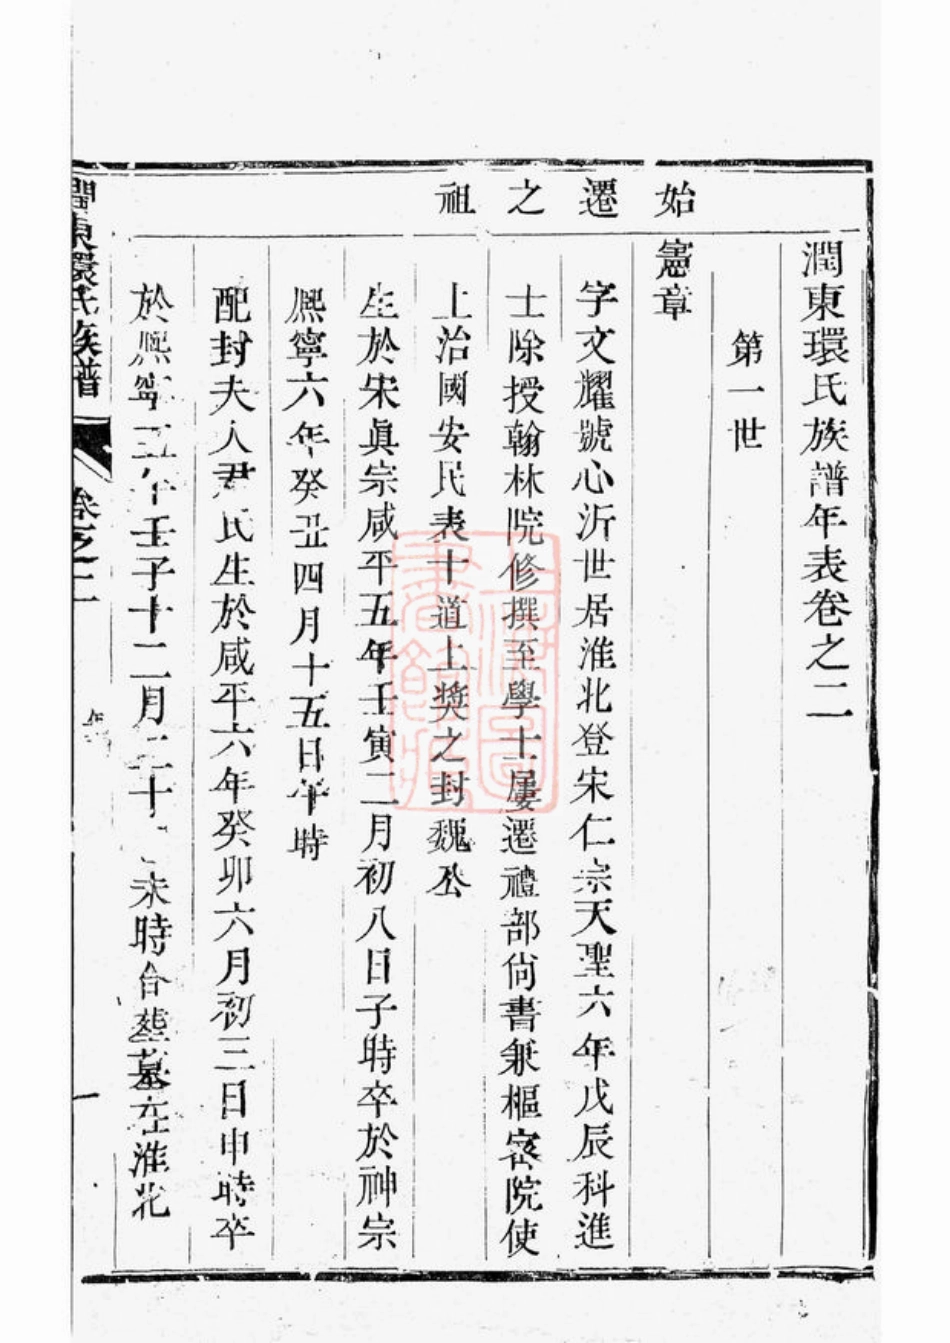 潤東環氏族譜年表卷之二
第一世
始遷之祖
憲章
字文耀號心沂世居淮北登宋仁宗天聖六年戊辰科進
士除授翰林院修撰至學士屢遷禮部尙書兼樞密院使
上治國安民表十道上奬之封魏公
生於宋眞宗咸平五年壬寅二月初八日子時卒於神宗
熈寧六年癸丑四月十五日午時
配封夫人尹氏生於咸平六年癸卯六月初三日申時卒
於熈寧五年壬子十二月二十 未時合葬墓在淮北
潤東環氏族譜
卷之二
一